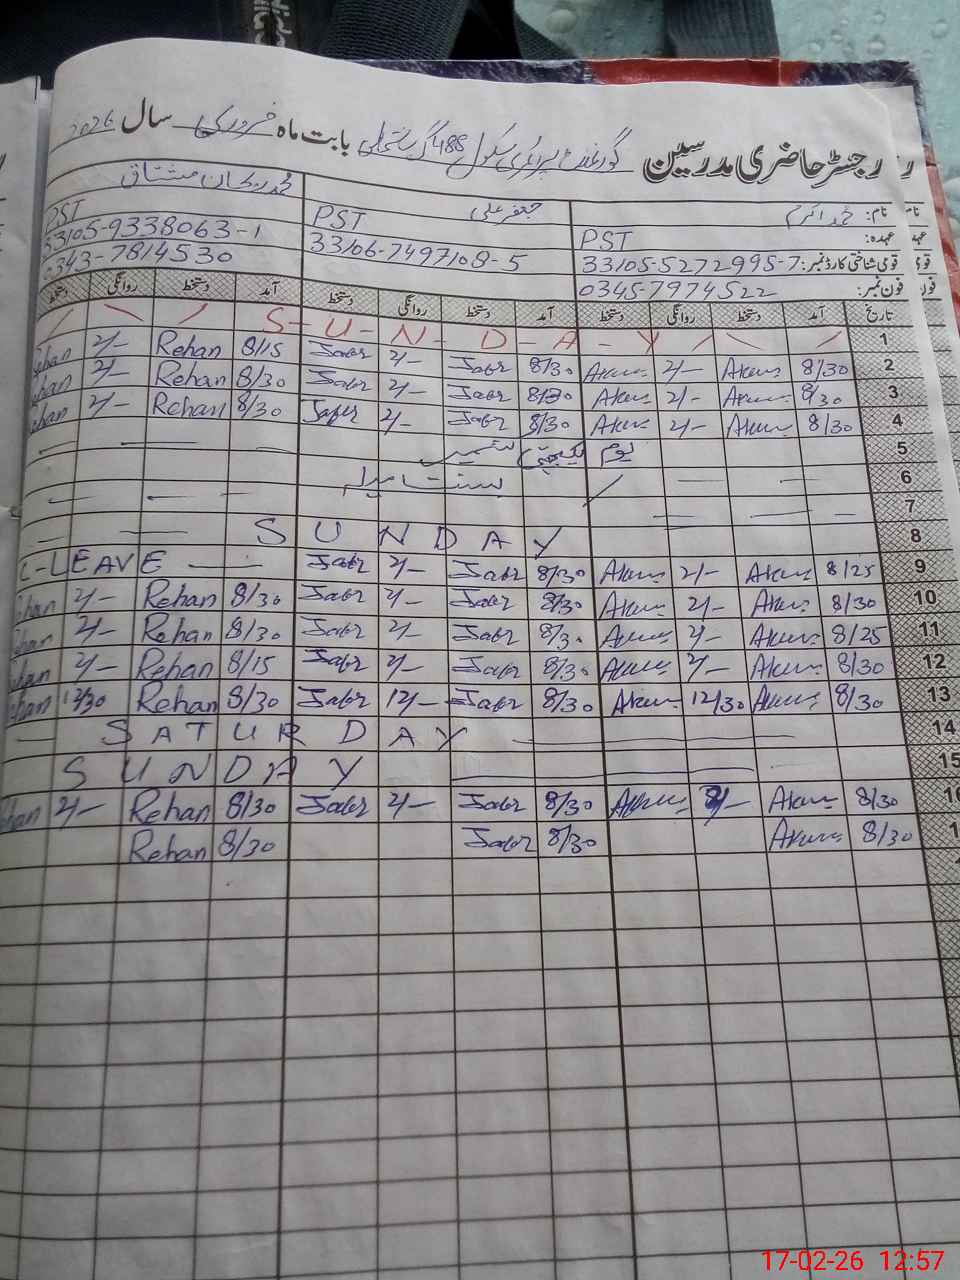 رجسٹر حاضری مدرسین گورنمنٹ پرائمری سکول 485 گ ب بابت ماہ فروری سال 2026
نام: محمد اکرم جعفر علی محمد ریحان مشتاق
عہدہ: PST PST PST
قومی شناختی کارڈ نمبر: 33105-5272995-7 33106-7497108-5 33105-9338063-1
فون نمبر: 0345-7974522 0343-7814530
تاریخ آمد دستخط روانگی دستخط آمد دستخط روانگی دستخط آمد دستخط روانگی دستخط
S-U-N-D-A-Y 1
Rehan 2/- Rehan 8/15 Jafer 2/- Jafer 8/30 Akram 2/- Akram 8/30 2
Rehan 2/- Rehan 8/30 Jafer 2/- Jafer 8/30 Akram 2/- Akram 8/30 3
Rehan 2/- Rehan 8/30 Jafer 2/- Jafer 8/30 Akram 2/- Akram 8/30 4
یوم یکجہتی کشمیر 5
بسنت میلہ 6
7
SUNDAY 8
C-LEAVE Jafer 2/- Jafer 8/30 Akram 2/- Akram 8/25 9
Rehan 2/- Rehan 8/30 Jafer 2/- Jafer 8/30 Akram 2/- Akram 8/30 10
Rehan 2/- Rehan 8/30 Jafer 2/- Jafer 8/30 Akram 2/- Akram 8/25 11
Rehan 2/- Rehan 8/15 Jafer 2/- Jafer 8/30 Akram 2/- Akram 8/30 12
Rehan 12/30 Rehan 8/30 Jafer 12/- Jafer 8/30 Akram 12/30 Akram 8/30 13
SATURDAY 14
SUNDAY 15
Rehan 2/- Rehan 8/30 Jafer 2/- Jafer 8/30 Akram 2/- Akram 8/30 16
Rehan 8/30 Jafer 8/30 Akram 8/30 1
17-02-26 12:57